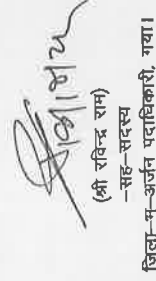 (श्री रविन्द्र राम)
–सह–सदस्य
जिला–भू–अर्जन पदाधिकारी, गया।